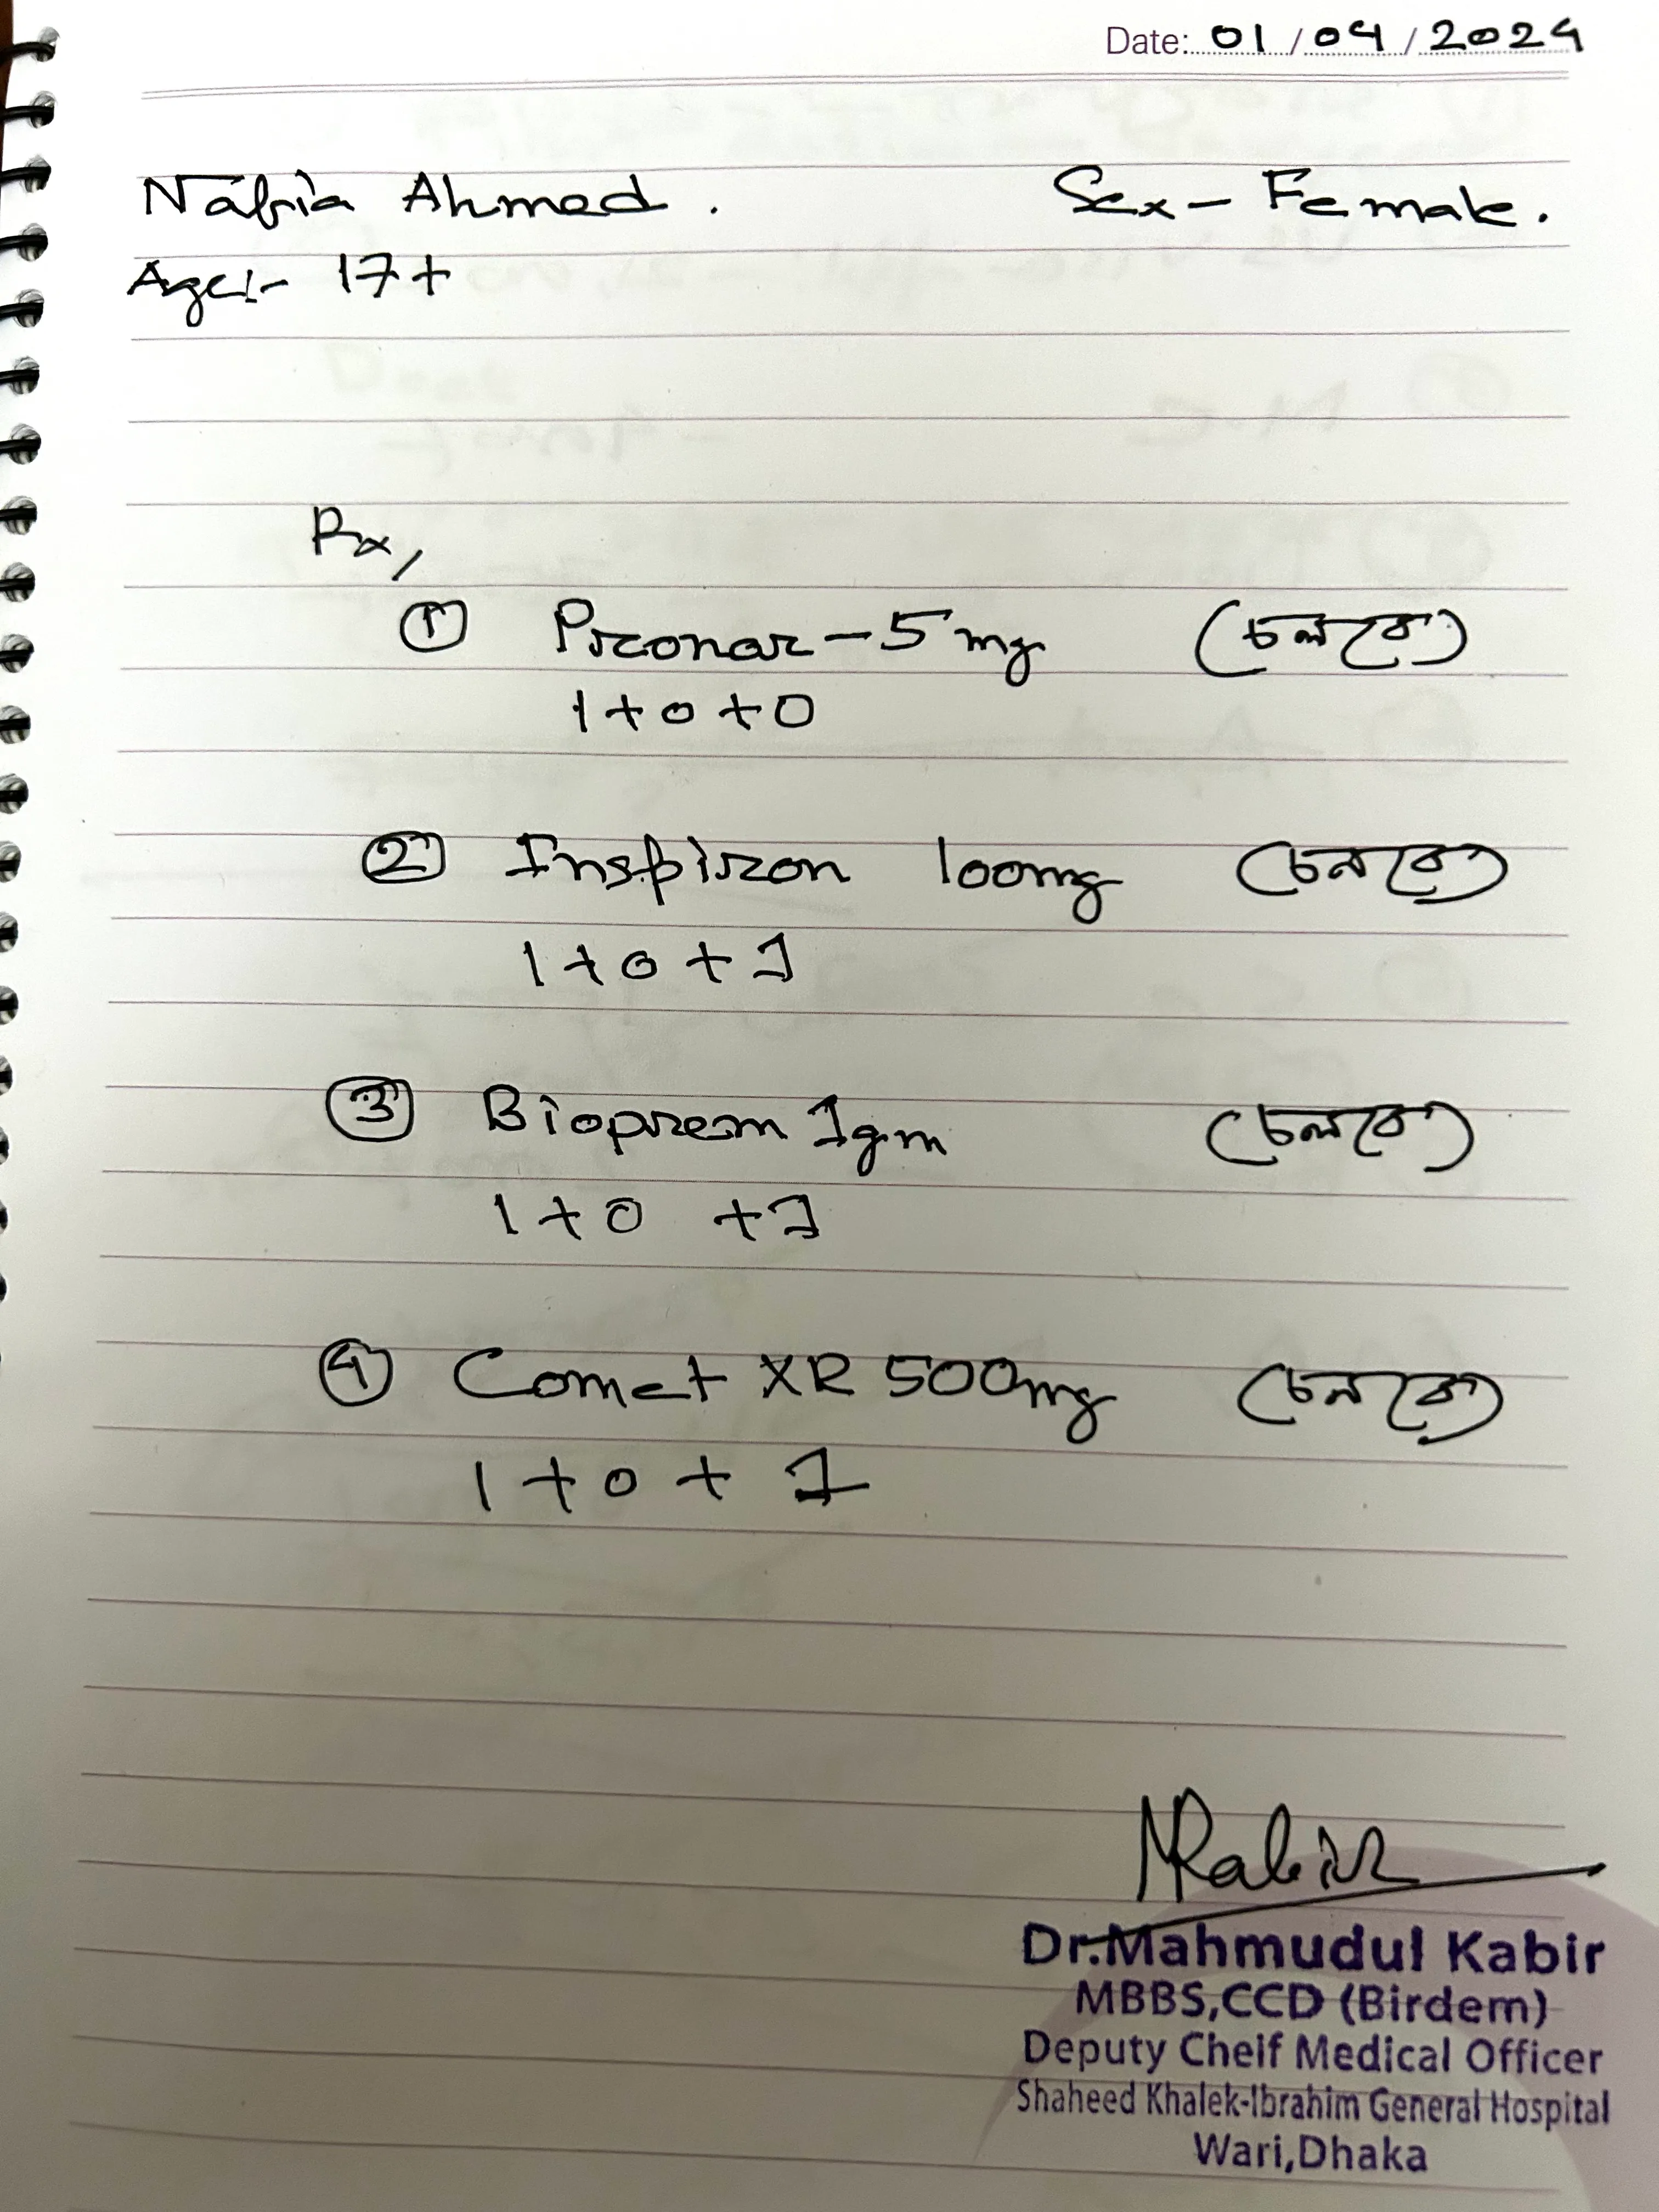 Date: 01/04/2024
Nabia Ahmed. Sex- Female.
Age:- 17+
Rx,
① Pronor-5mg (চলবে)
1+0+0
② Inspiron 100mg (চলবে)
1+0+1
③ Bioprem 1gm (চলবে)
1+0+1
④ Comet XR 500mg (চলবে)
1+0+1
MKabir
Dr.Mahmudul Kabir
MBBS,CCD (Birdem)
Deputy Cheif Medical Officer
Shaheed Khalek-Ibrahim General Hospital
Wari,Dhaka